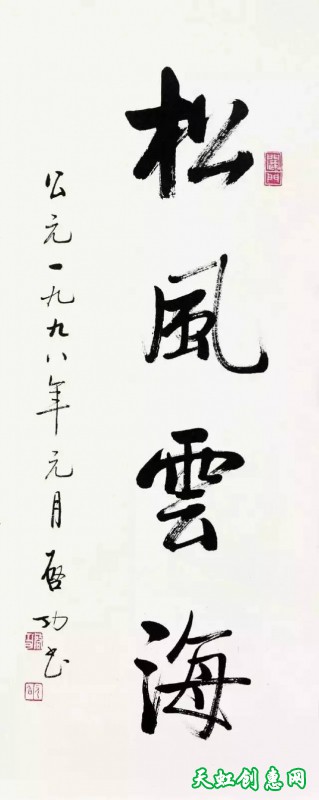 松風雲海
公元一九九八年元月 啓功书
天虹创惠网